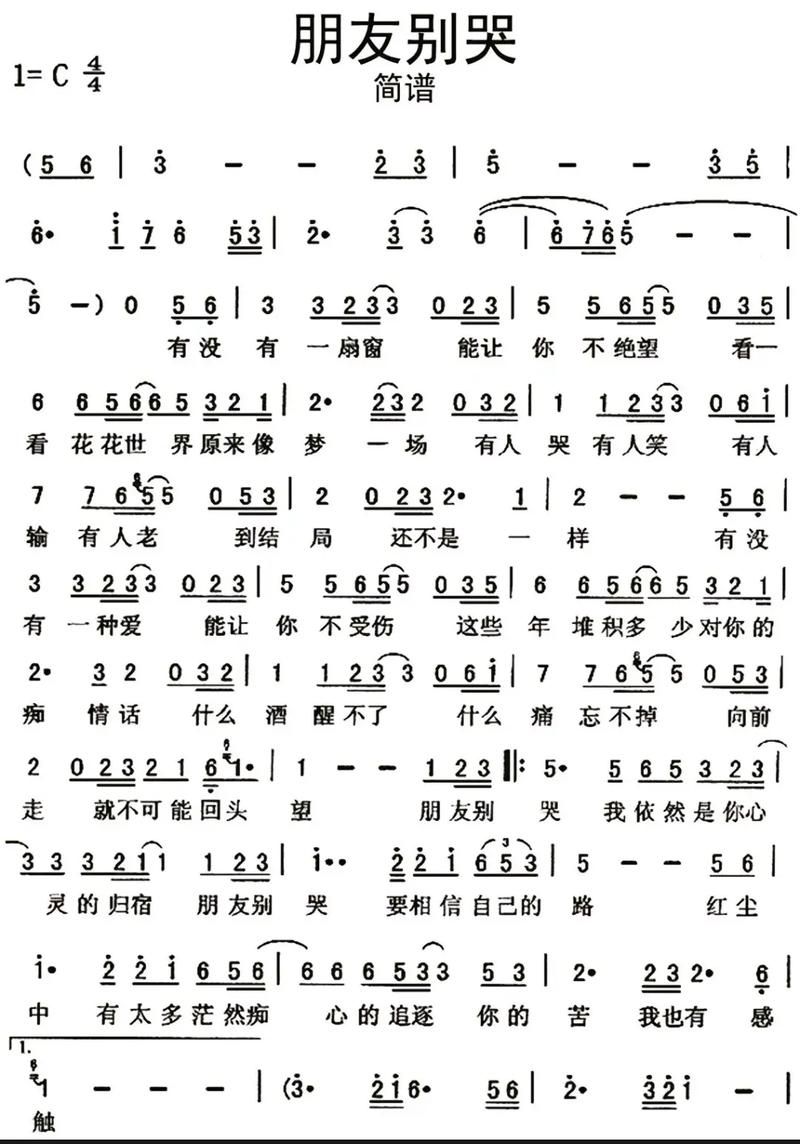 朋友别哭
简谱
1= C 4/4
(5 6 | 3 - - 2 3 | 5 - - 3 5 |
6· 1 7 6 5 3 | 2· 3 3 6 | 6 7 6 5 - - |
5 -) 0 5 6 | 3 3 2 3 3 0 2 3 | 5 5 6 5 5 0 3 5 |
有没 有 一扇窗 能让 你 不绝望 看一
6 6 5 6 6 5 3 2 1 | 2· 2 3 2 0 3 2 | 1 1 2 3 3 0 6 1 |
看 花花世 界原来像 梦 一场 有人 哭 有人笑 有人
7 7 6 5 5 0 5 3 | 2 0 2 3 2· 1 | 2 - - 5 6 |
输 有人老 到结 局 还不是 一 样 有没
3 3 2 3 3 0 2 3 | 5 5 6 5 5 0 3 5 | 6 6 5 6 6 5 3 2 1 |
有 一种爱 能让 你 不受伤 这些 年 堆积多 少对你的
2· 3 2 0 3 2 | 1 1 2 3 3 0 6 1 | 7 7 6 5 5 0 5 3 |
痴 情话 什么 酒 醒不了 什么 痛 忘不掉 向前
6
2 0 2 3 2 1 6 1· | 1 - - 1 2 3 ‖: 5· 5 6 5 3 2 3 |
走 就不可能回头 望 朋友别 哭 我依然是你心
3 3 3 2 1 1 1 2 3 | 1·· 2 2 1 6 5 3 | 5 - - 5 6 |
3
灵的归宿 朋友别 哭 要相信自己的 路 红尘
1· 2 2 1 6 5 6 | 6 6 6 5 3 3 5 3 | 2· 2 3 2· 6 |
中 有太多茫然痴 心的追逐 你的 苦 我也有 感
1.
6
1 - - - | (3· 2 1 6· 5 6 | 2· 3 2 1 - |
触